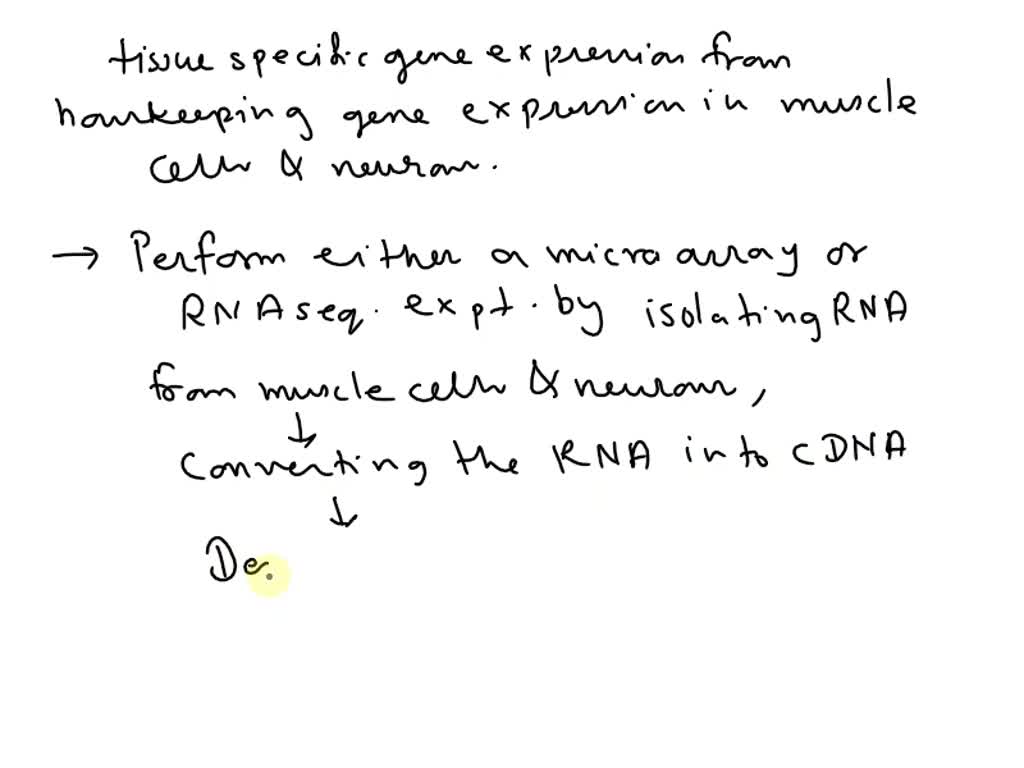 tissue specific gene expression from
housekeeping gene expression in muscle
cells & neurons.
→ Perform either a micro array or
RNA seq. expt. by isolating RNA
from muscle cells & neurons,
↓
Converting the RNA into cDNA
↓
De